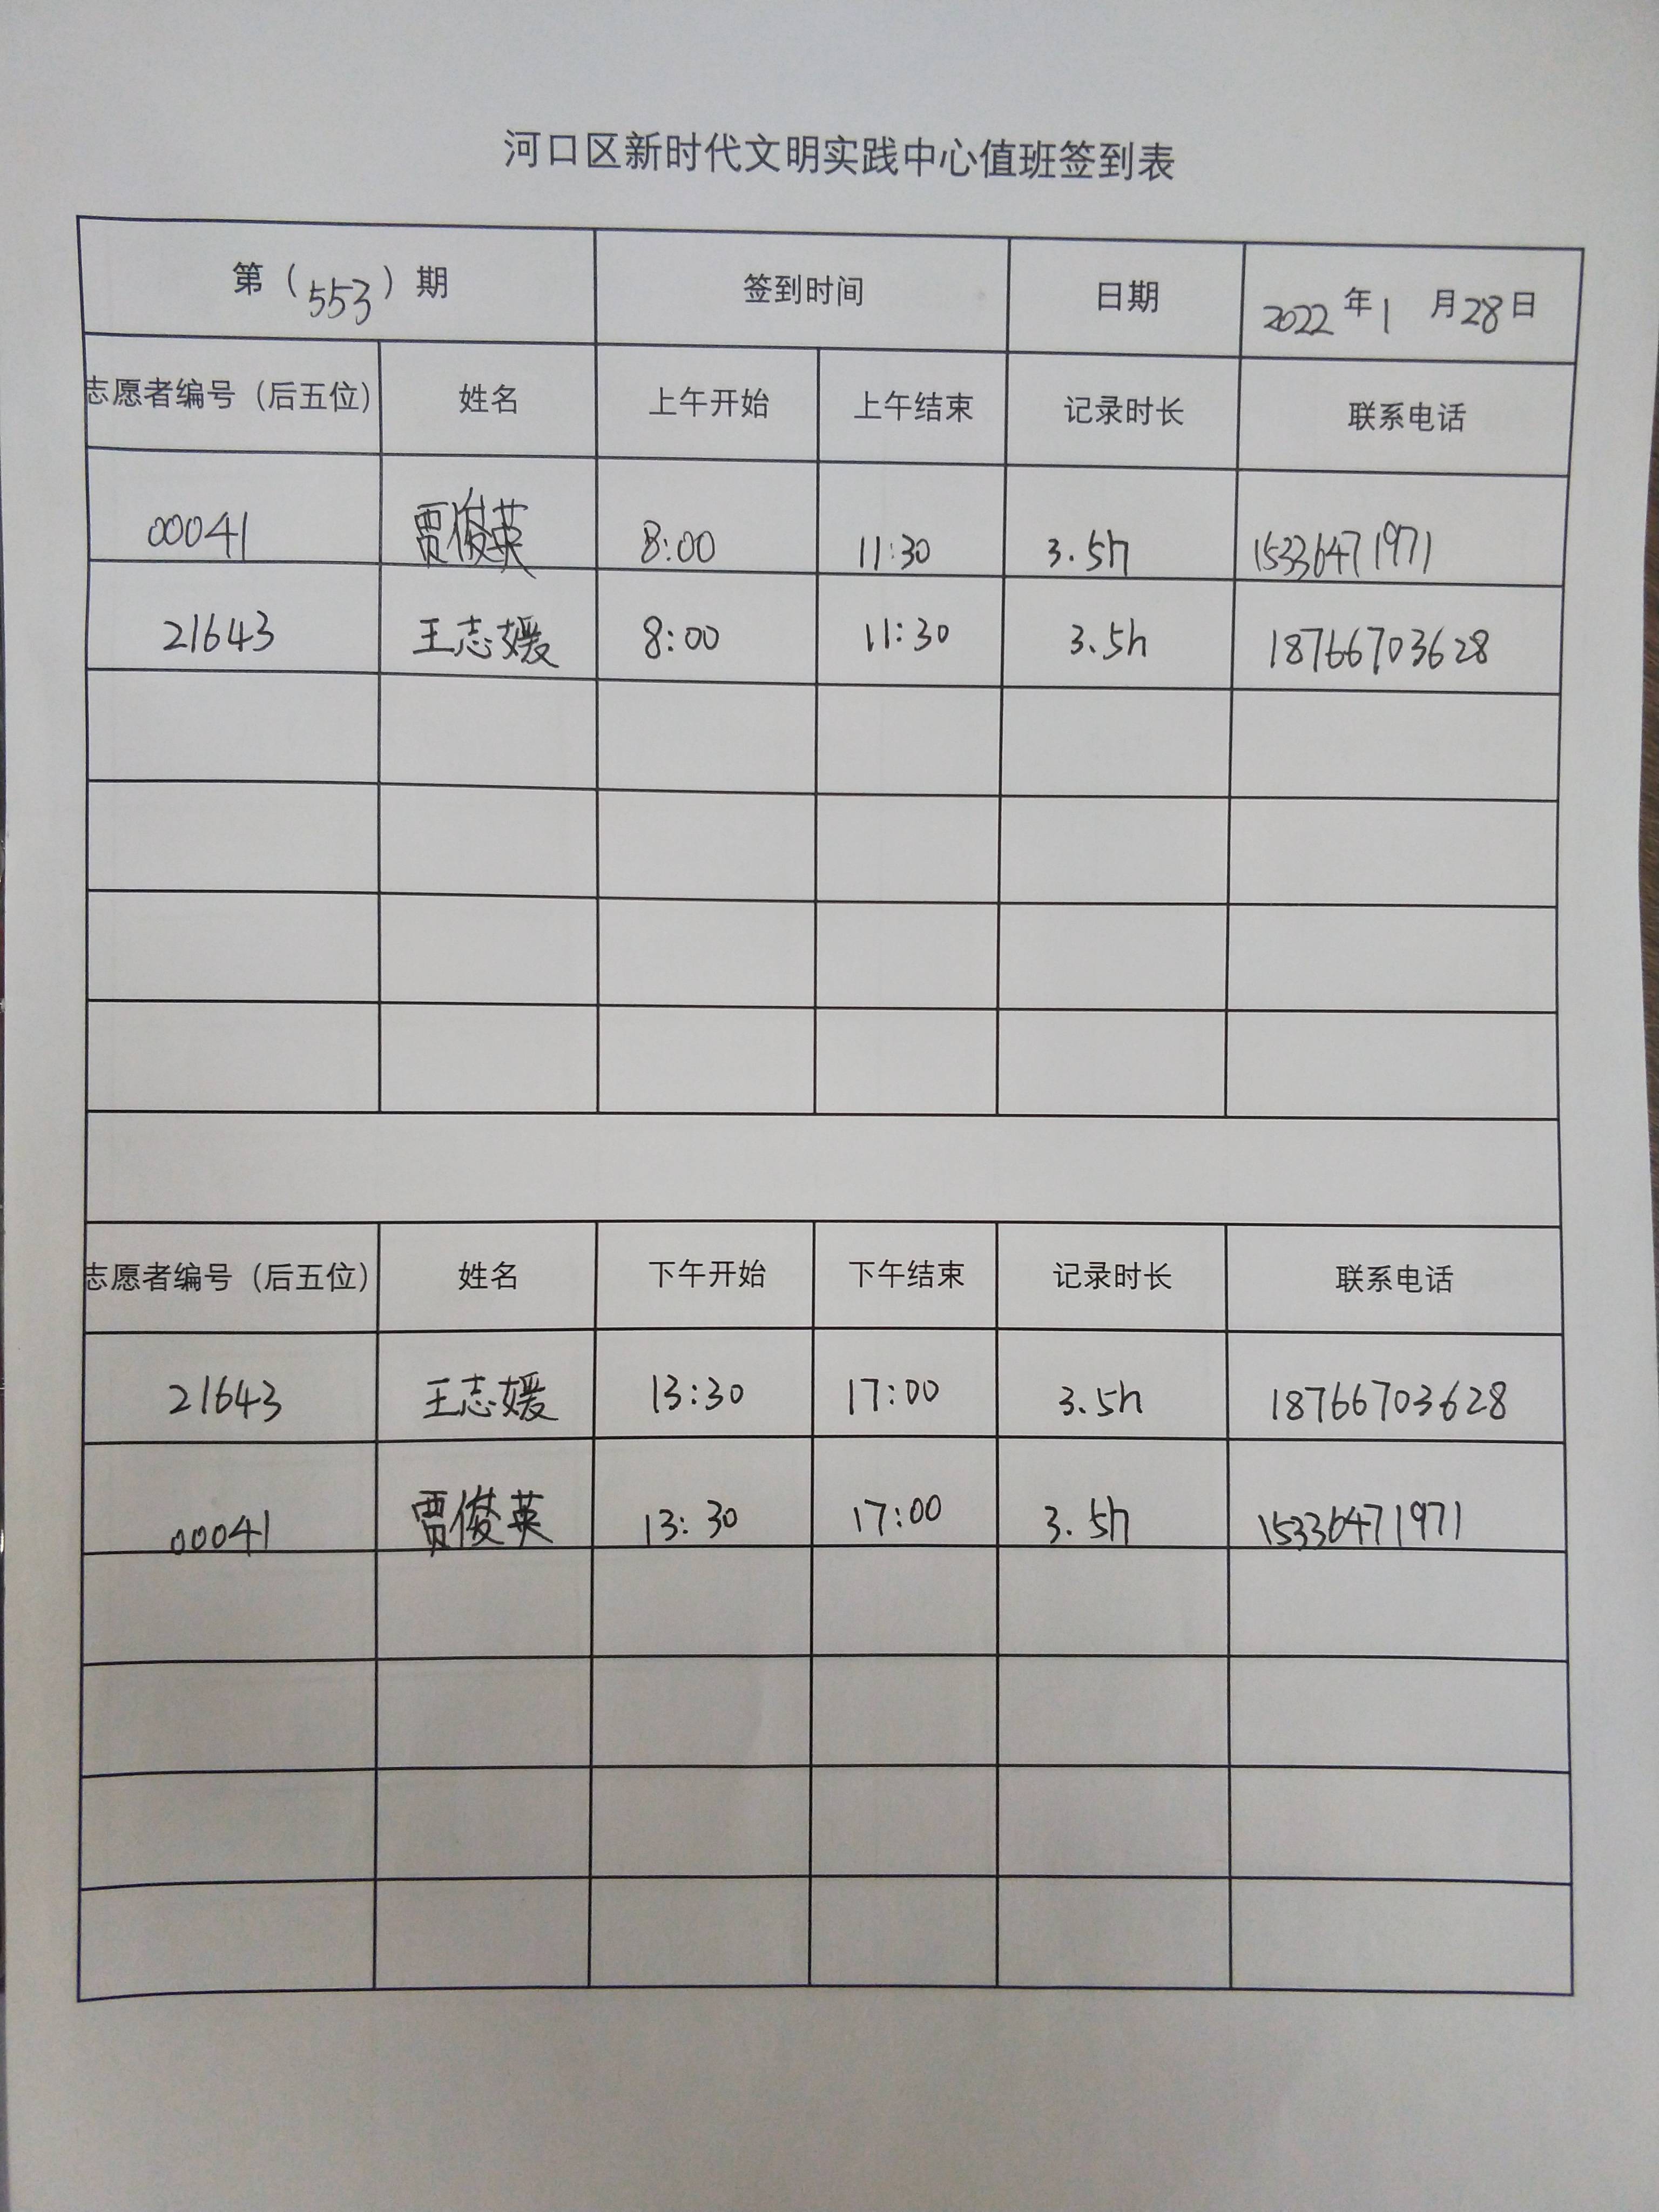 河口区新时代文明实践中心值班签到表
第（553）期 签到时间 日期 2022年1月28日
志愿者编号（后五位） 姓名 上午开始 上午结束 记录时长 联系电话
00041 贾俊英 8:00 11:30 3.5h 15336471971
21643 王志媛 8:00 11:30 3.5h 18766703628
志愿者编号（后五位） 姓名 下午开始 下午结束 记录时长 联系电话
21643 王志媛 13:30 17:00 3.5h 18766703628
00041 贾俊英 13:30 17:00 3.5h 15336471971